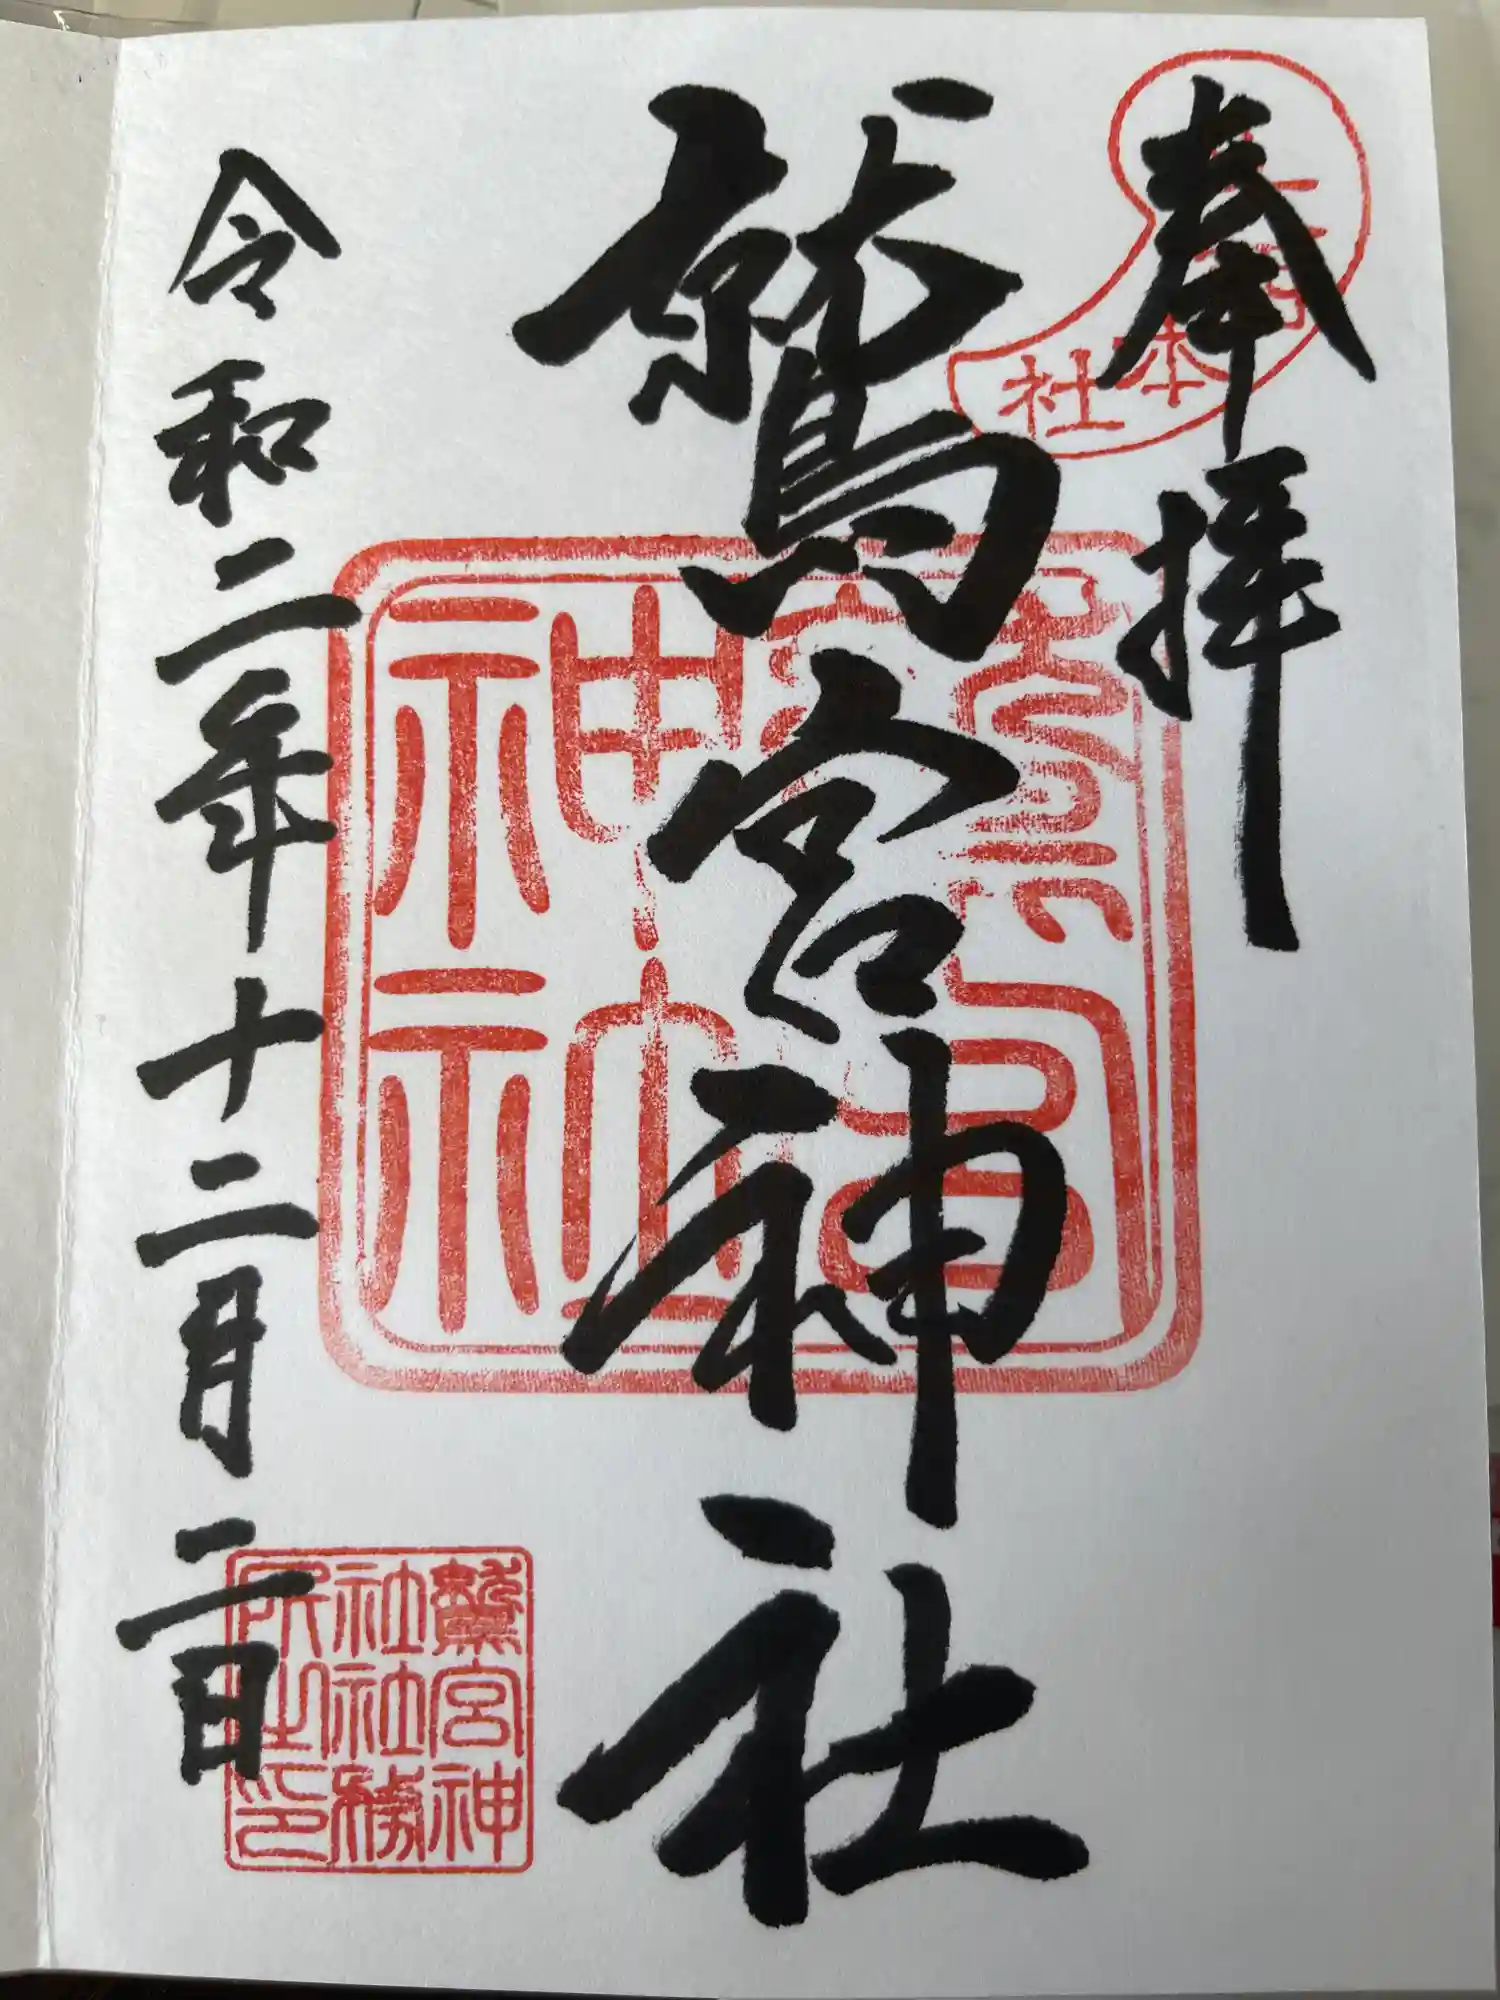 奉拝
本社
鷲宮神社
鷲宮
神社
令和二年十二月二日
鷲宮神
社社務
所之印